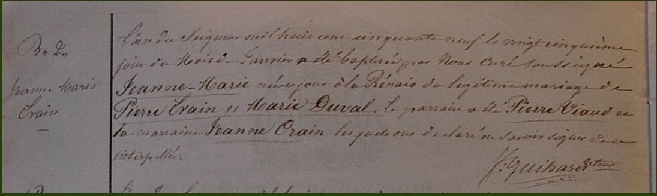 B. de
Jeanne Marie
Orain
L'an du Seigneur mil huit cent cinquante neuf le vingt cinquième
jour du Mois de Janvier a été baptisée par Nous Curé soussigné
Jeanne-Marie née ce jour à la Rénais du légitime mariage de
Pierre Orain et Marie Duval. Le parrain a été Pierre Viaud et
la marraine Jeanne Orain lesquels ont déclaré ne savoir signer de ce
interpellés.
J. Guihard